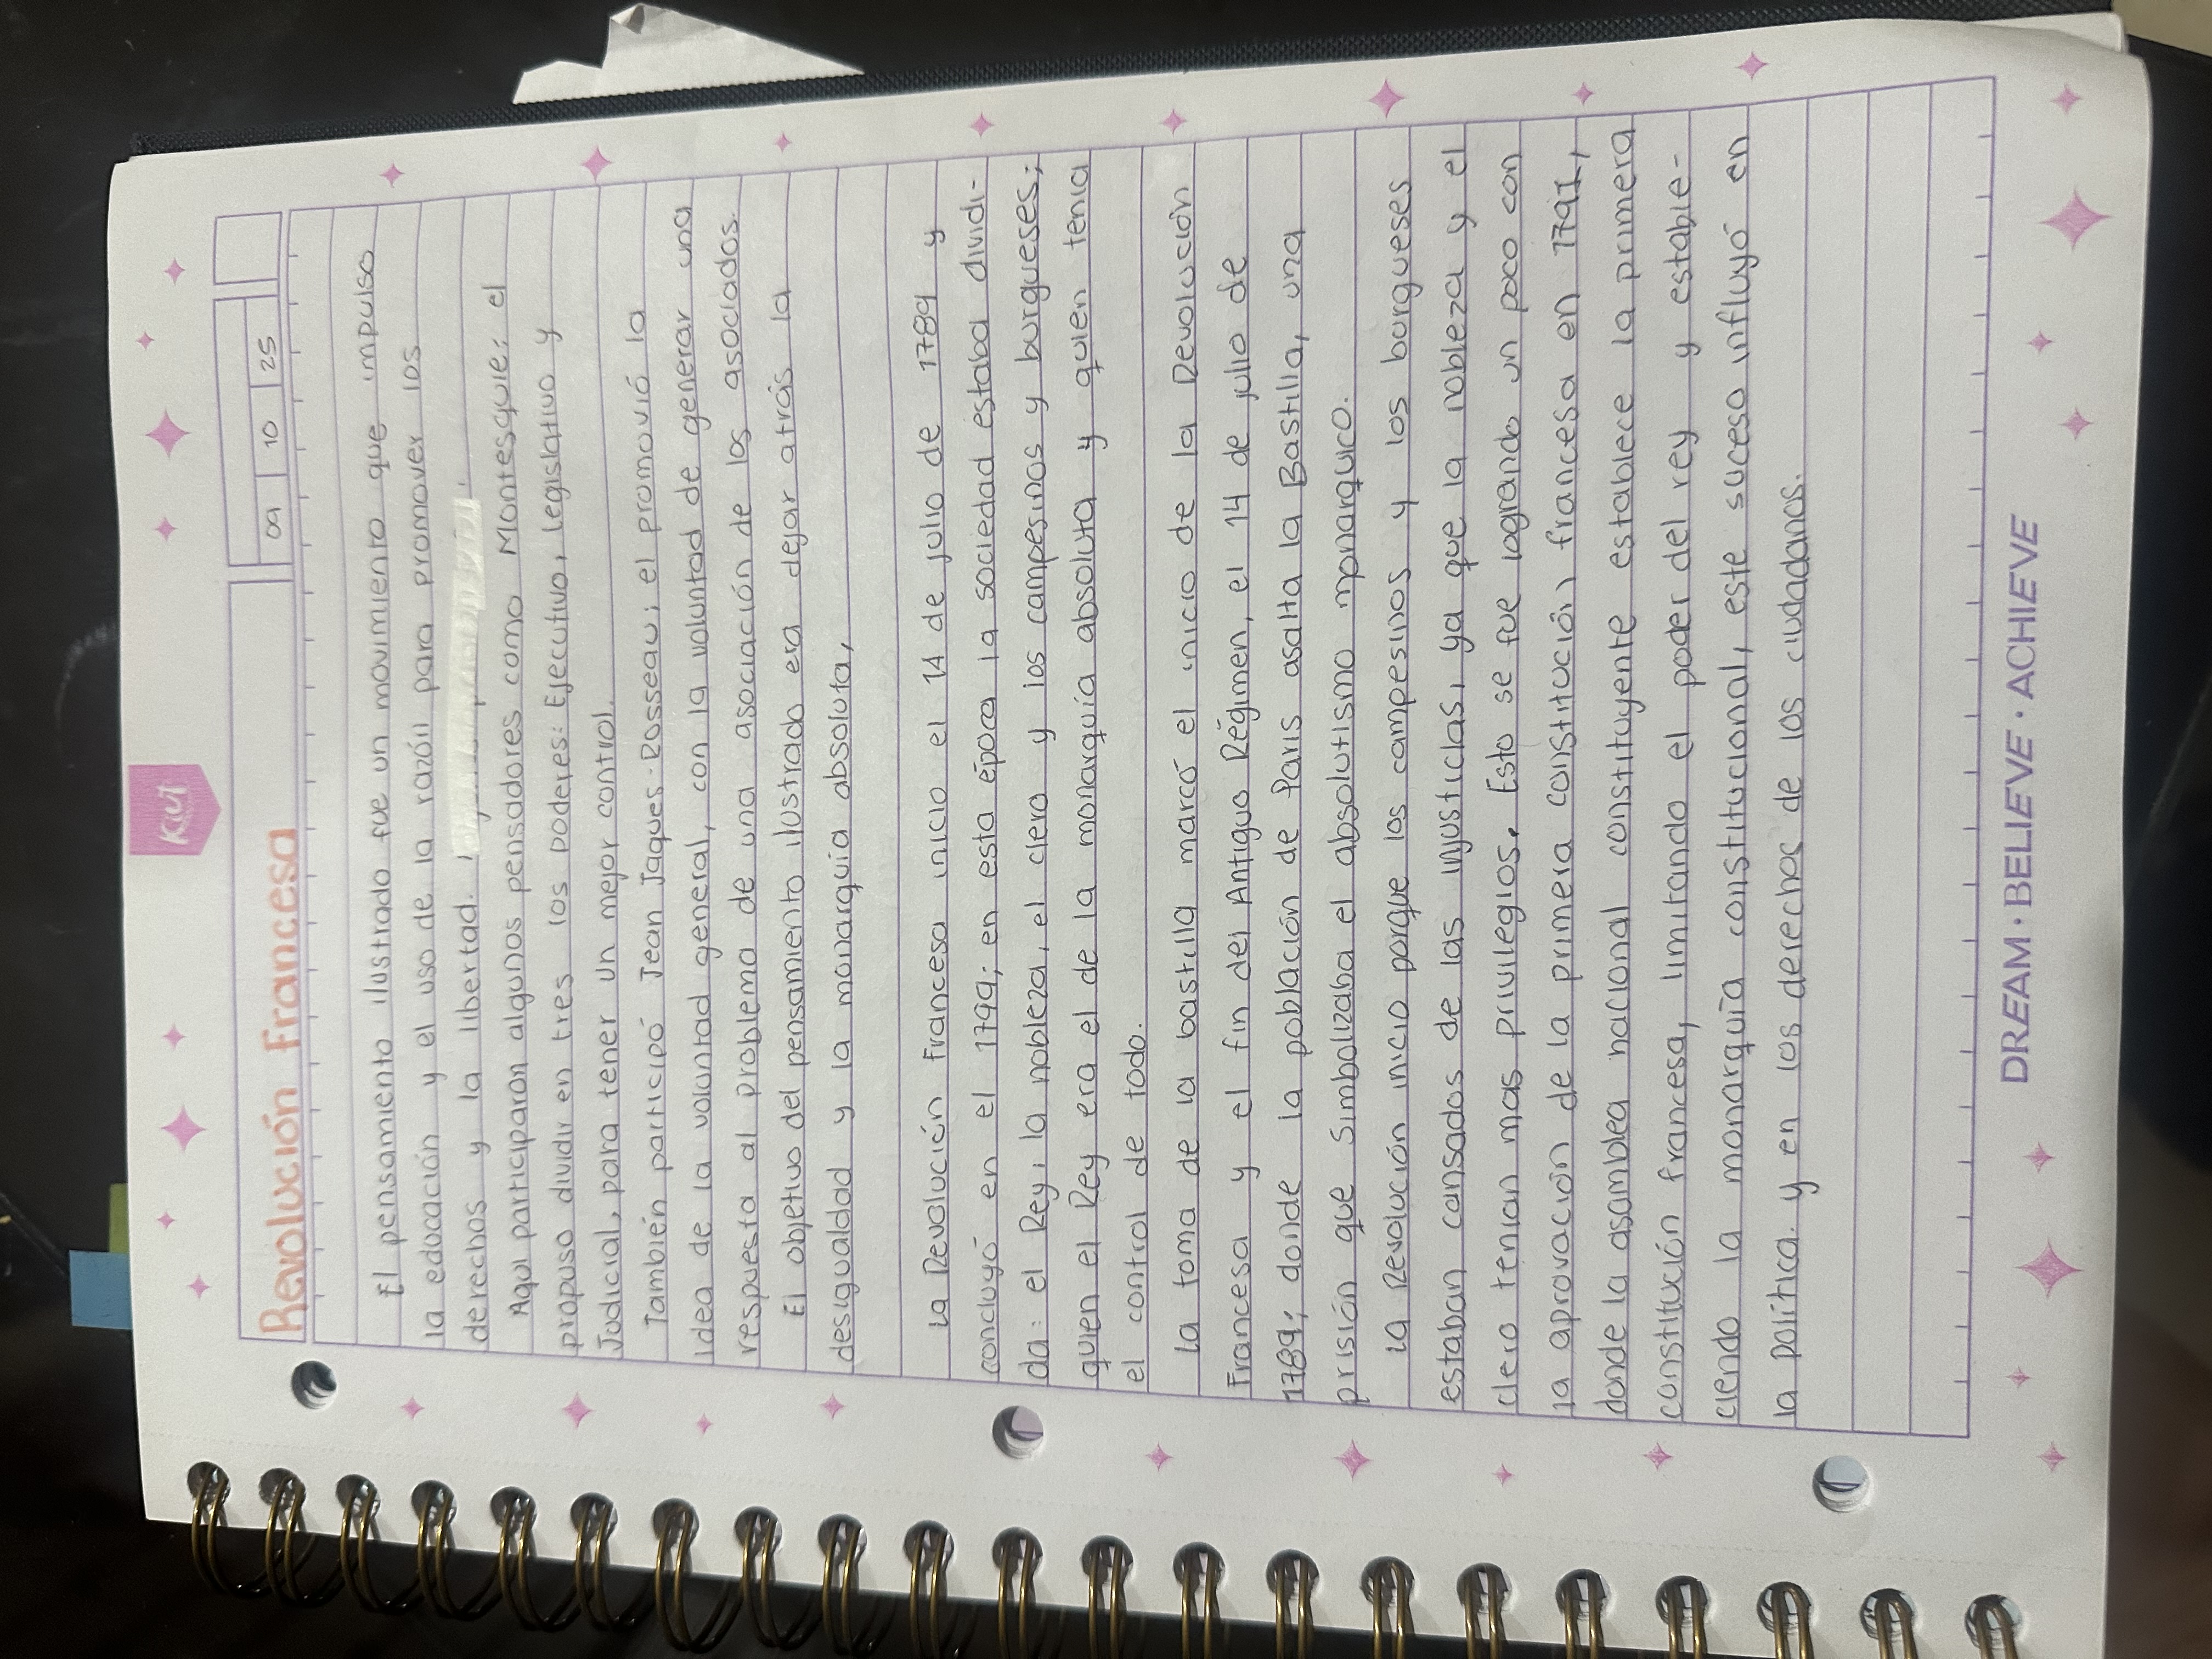 Kiut
09 10 25
Revolución Francesa
El pensamiento ilustrado fue un movimiento que impulso
la educación y el uso de la razón para promover los
derechos y la libertad.
Aqui participaron algunos pensadores como Montesquie; el
propuso dividir en tres los poderes: Ejecutivo, legislativo y
Judicial, para tener un mejor control.
También participó Jean Jaques Rosseau; el promovió la
idea de la voluntad general, con la voluntad de generar una
respuesta al problema de una asociación de los asociados.
El objetivo del pensamiento ilustrado era dejar atrás la
desigualdad y la monarquía absoluta,
La Revolución Francesa inicio el 14 de julio de 1789 y
concluyó en el 1799; en esta época la sociedad estaba dividi-
da: el Rey, la nobleza, el clero y los campesinos y burgueses;
quien el Rey era el de la monarquía absoluta y quien tenia
el control de todo.
La toma de la bastilla marcó el inicio de la Revolución
Francesa y el fin del Antiguo Régimen, el 14 de julio de
1789; donde la población de Paris asalta la Bastilla, una
prisión que simbolizaba el absolutismo monarquico.
La Revolución inicio porque los campesinos y los burgueses
estaban cansados de las injusticias, ya que la nobleza y el
clero tenian mas privilegios. Esto se fue logrando un poco con
la aprovación de la primera constitución francesa en 1791,
donde la asamblea nacional constituyente establece la primera
constitución francesa, limitando el poder del rey y estable-
ciendo la monarquía constitucional, este suceso influyó en
la política y en los derechos de los ciudadanos.
DREAM · BELIEVE · ACHIEVE